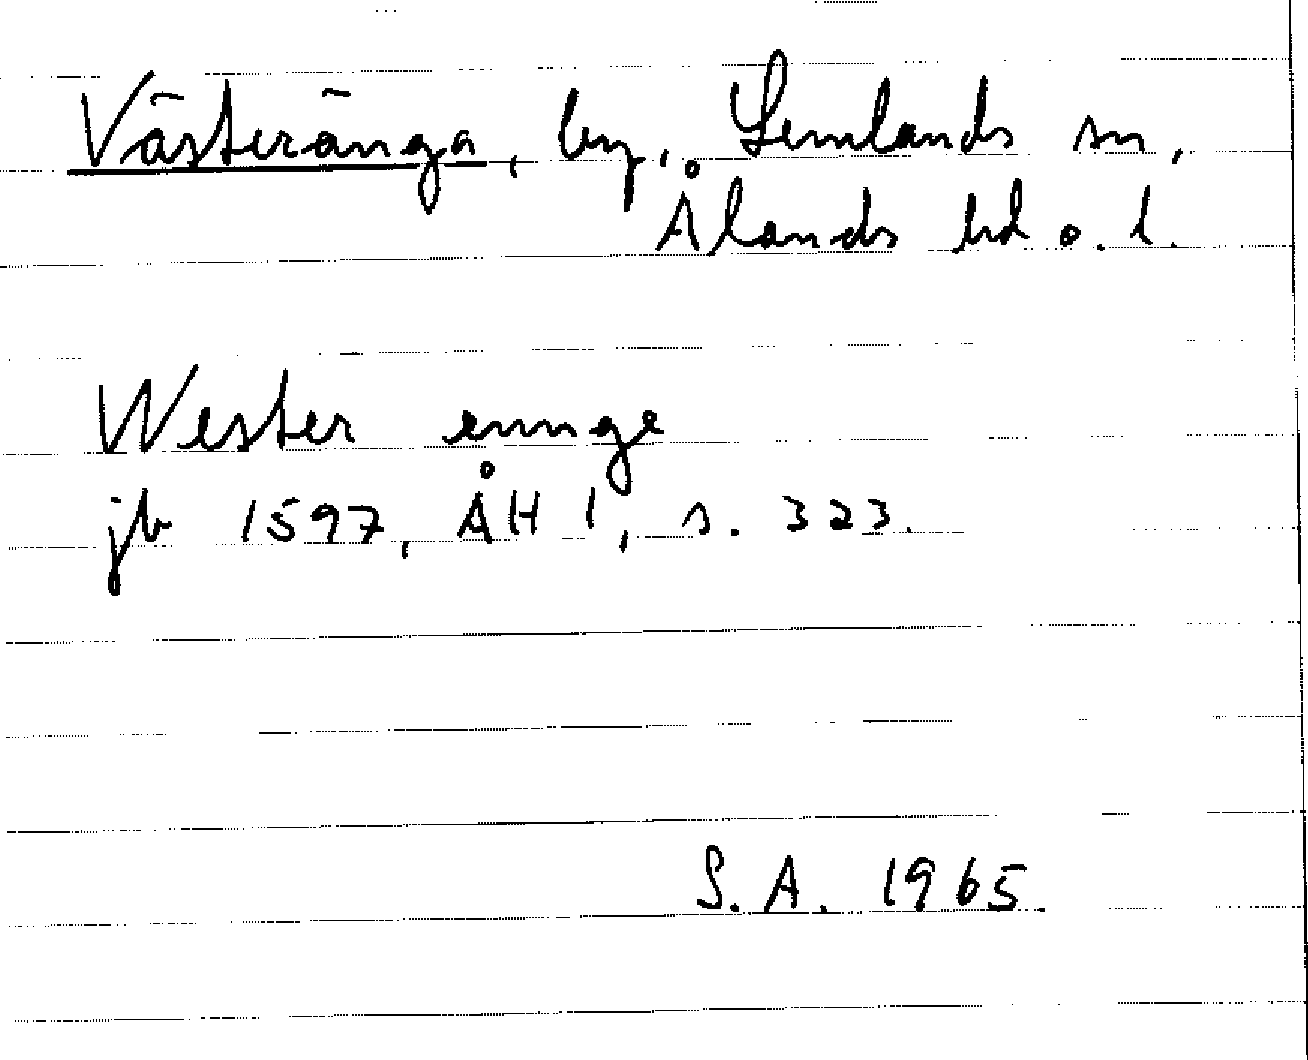 Västeränga, by, Lemlands sn,
Ålands hd o. l.
Wester ennge
jb 1597, ÅH 1, s. 323.
S.A. 1965.